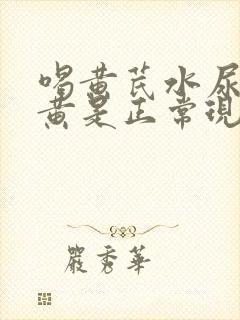 喝黄芪水尿
黄是正常现
嚴秀華